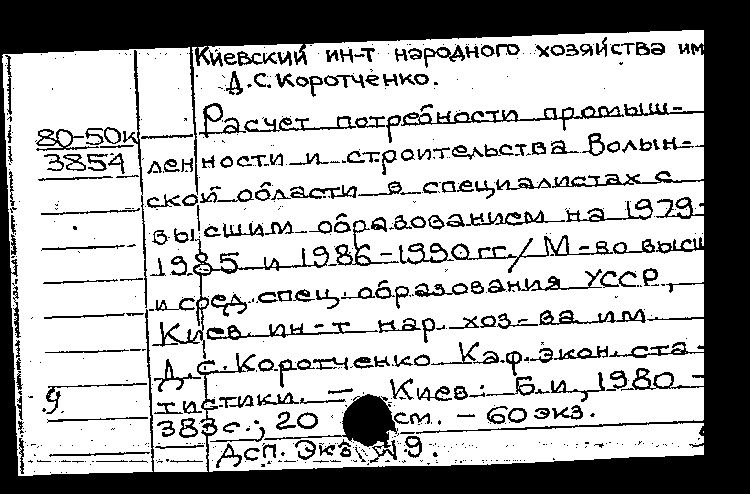 Киевский ин-т народного хозяйства им
Д.С. Коротченко.
Расчет потребности промыш-
80-50к
3854
ленности и строительства Волын-
ской области в специалистах с
высшим образованием на 1979-
1985 и 1986-1990 гг./ М-во высш
и сред. спец. образования УССР,
Киев. ин-т нар. хоз-ва им.
Д.С. Коротченко Каф. экон. ста-
тистики. — Киев: Б.и., 1980 -
9
383 с.; 20 см. - 60 экз.
Дсп. Экз. № 9.